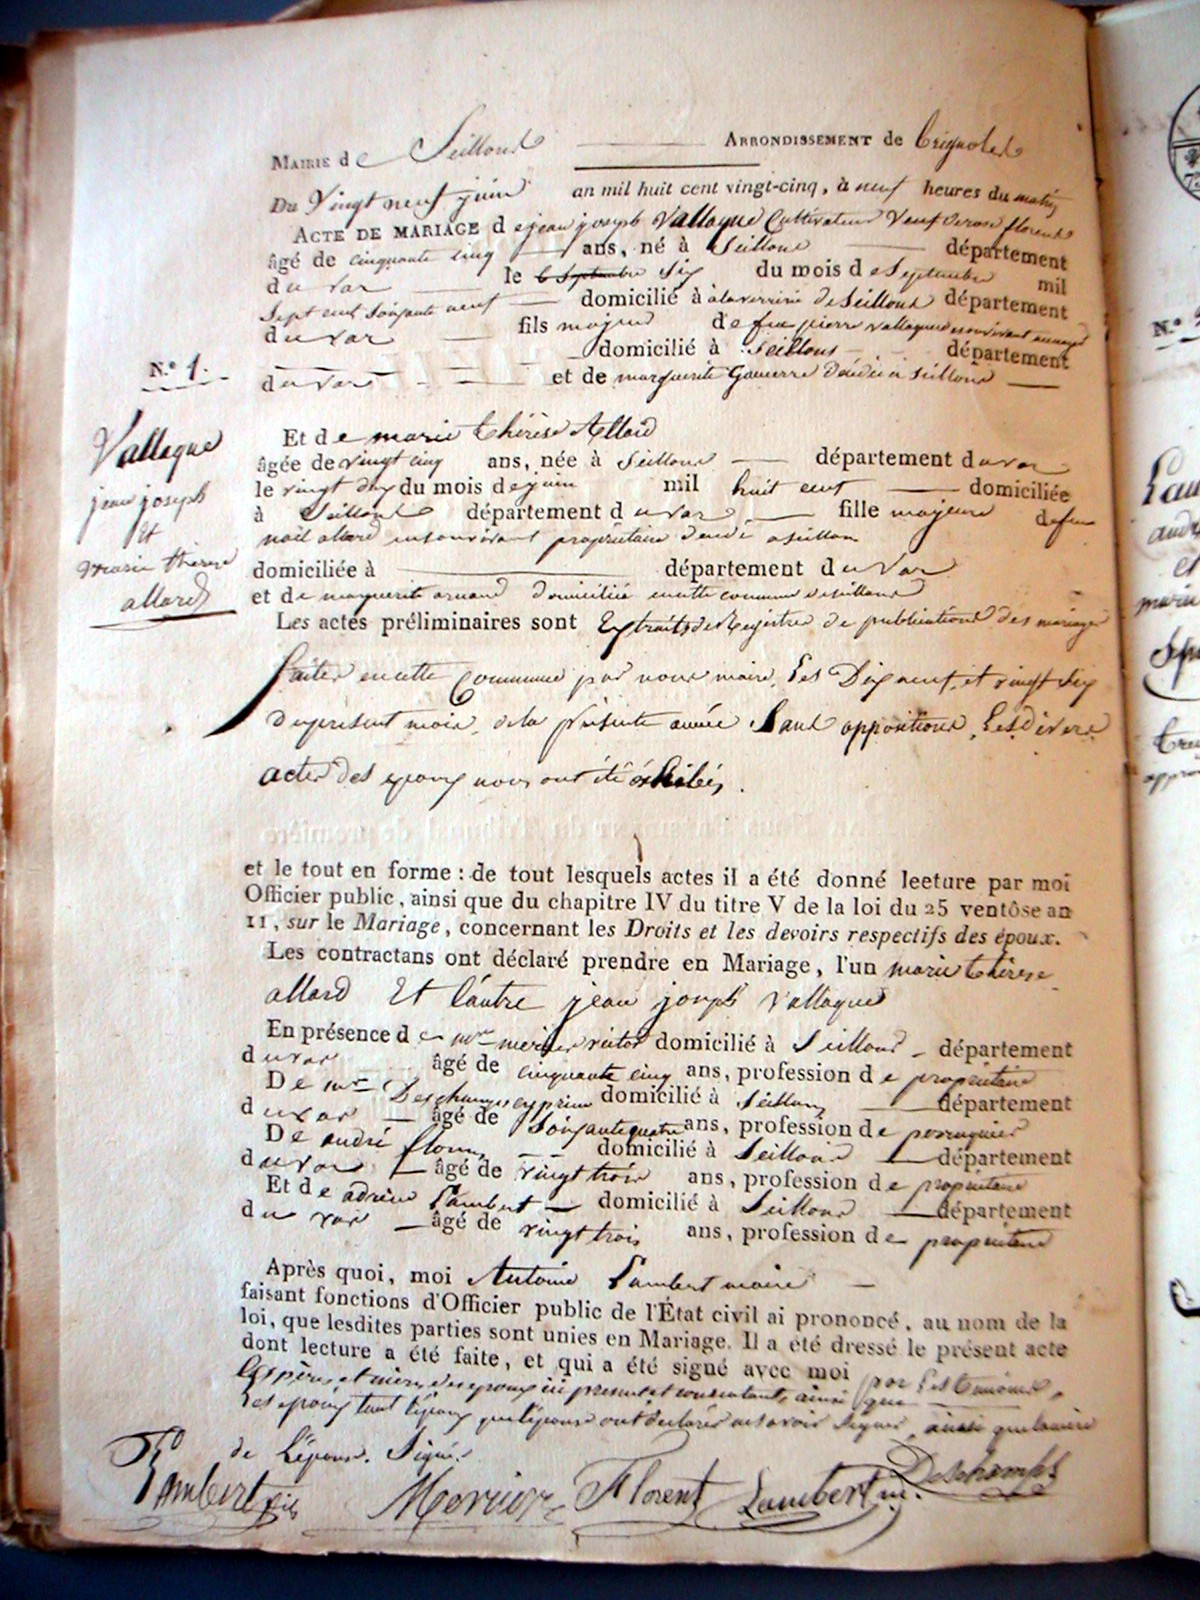 Mairie de Seillons Arrondissement de Brignoles
Du Vingt neuf juin an mil huit cent vingt-cinq, à neuf heures du matin
Acte de mariage de jean joseph Vallaque Cultivateur Veuf de rose florent
âgé de cinquante cinq ans, né à Seillons département
du Var le 6 Septembre Six du mois de Septembre mil
Sept cent soixante neuf domicilié à a la verrerie de Seillons département
du var fils majeur de feu pierre vallaque
domicilié à Seillons département
du var et de marguerite décédée à Seillons
N.º 1.
Vallaque
jean joseph
Et
marie thérèse
allard
Et de marie thérèse Allard
âgée de vingt cinq ans, née à Seillons département du var
le vingt dux du mois de juin mil huit cent domiciliée
à Seillons département du var fille majeure de feu
noël allard en son vivant propriétaire décédé a seillons
domiciliée à département du Var
et de marguerite arnaud domiciliée en cette commune de seillons
Les actes préliminaires sont Extraits des Registres de publications des mariages
faites en cette Commune par nous maire, Les Dix neuf et vingt Six
du present mois, de la présente année Sans oppositions, Les divers
actes des epoux nous ont été exhibés.
et le tout en forme : de tout lesquels actes il a été donné leeture par moi
Officier public, ainsi que du chapitre IV du titre V de la loi du 25 ventôse an
11, sur le Mariage, concernant les Droits et les devoirs respectifs des époux.
Les contractans ont déclaré prendre en Mariage, l'un marie thérèse
allard Et l'autre jean joseph Vallaque
En présence de mr mercier victor domicilié à Seillons département
du var âgé de cinquante cinq ans, profession de propriétaire
De mr Deschamps cyprien domicilié à Seillons département
du var âgé de soixante quatre ans, profession de perruquier
De andré florens domicilié à Seillons département
du var âgé de vingt trois ans, profession de propriétaire
Et de adrien Lambert domicilié à Seillons département
du var âgé de vingt trois ans, profession de propriétaire
Après quoi, moi Antoine Lambert maire
faisant fonctions d'Officier public de l'État civil ai prononcé, au nom de la
loi, que lesdites parties sont unies en Mariage. Il a été dressé le présent acte
dont lecture a été faite, et qui a été signé avec moi par Les témoins,
Les père et mère des epoux ici present et consentant, ainsi que
Les epoux tant l'époux que l'épouse ont déclarés ne savoir signer, ainsi que la mère
de L'épouse. Signé.
Lambert fils Mercier Florent Lambert m. Deschamps